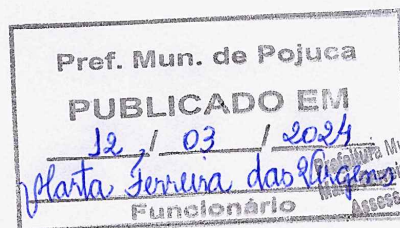 Pref. Mun. de Pojuca
PUBLICADO EM
12 / 03 / 2024
Marta Ferreira das Virgens
Funcionário
Prefeitura Mu
Assess